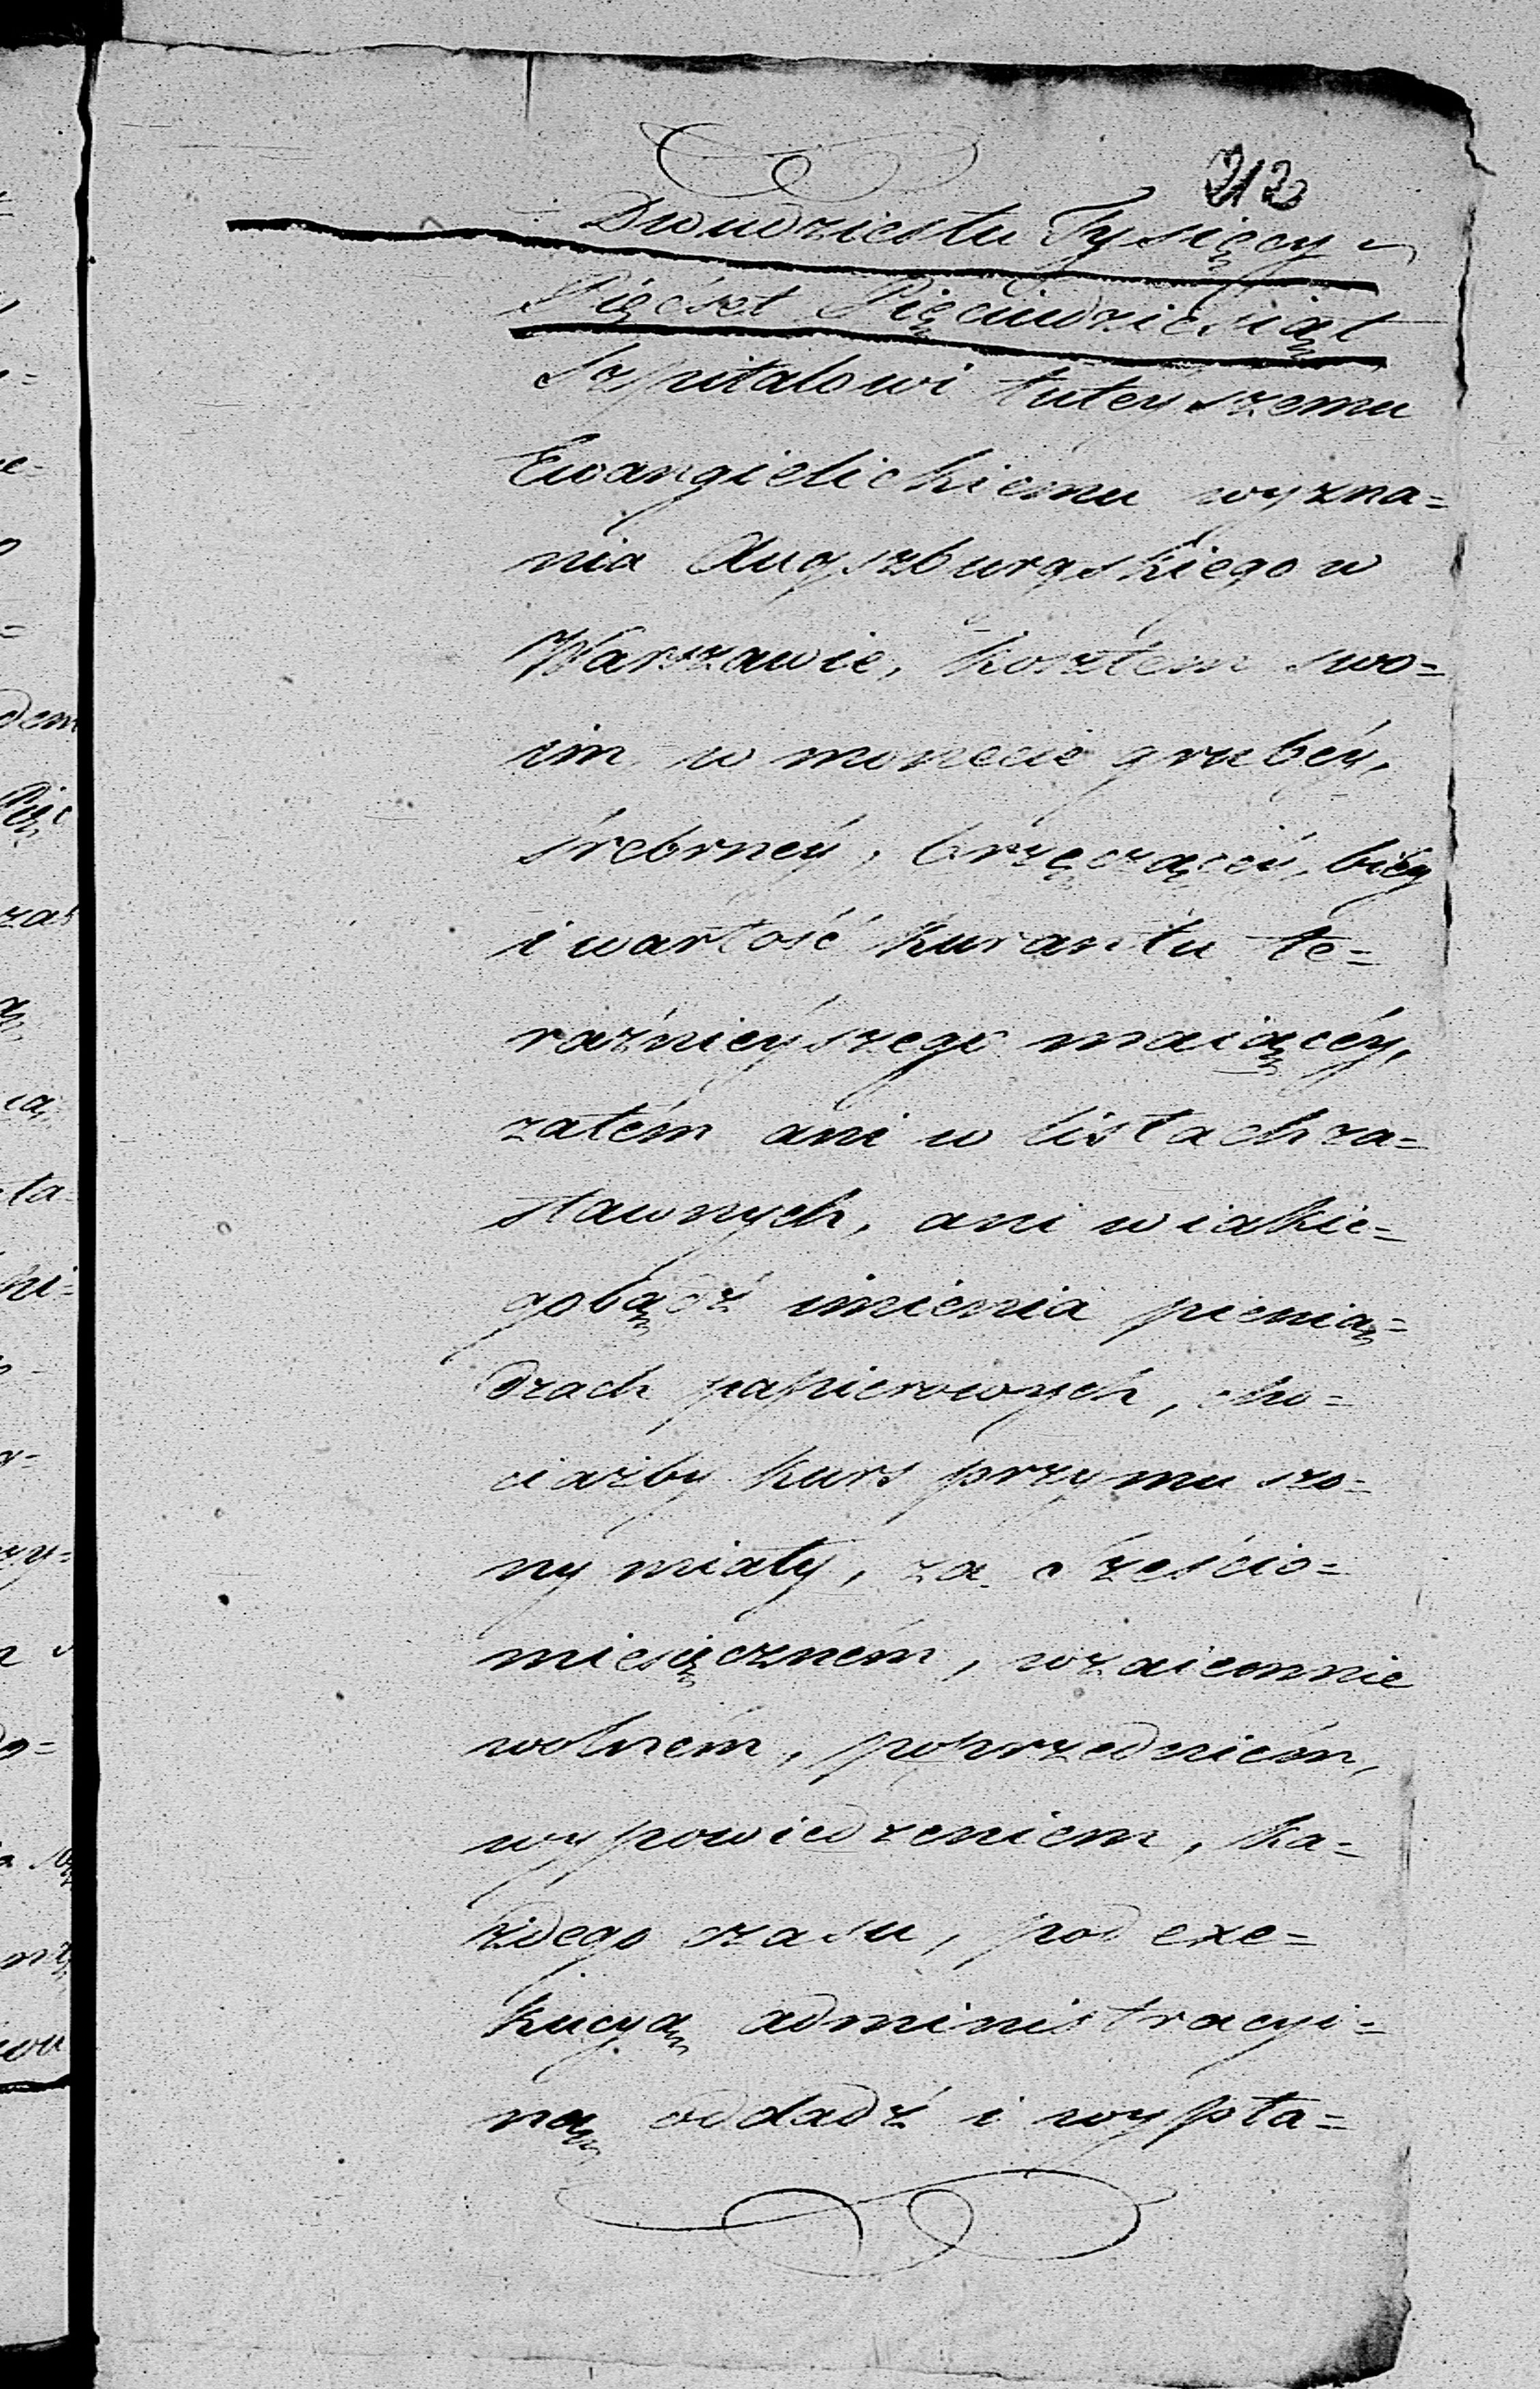 212
Dwudziestu Tysięcy
Pięćset Pięciudziesiąt
Szpitalowi tuteyszemu
Ewangielickiemu wyzna=
nia Augszburgskiego w
Warszawie, kosztem swo=
im w monecie grubéy,
śrebrnéy, brzęczącéy, bieg
i wartość kurantu te=
raźnieyszego maiącéy,
zatém ani w listach za=
stawnych, ani w iakie=
gobądź imienia pienią=
dzach papierowych, cho=
ciażby kurs przymuszo=
ny miały, za sześcio=
miesięczném, wzaiemnie
wolném, poprzedniém,
wypowiedzeniem, ka=
żdego czasu, pod exe=
kucyą administracyi=
ną oddadź i wypła=